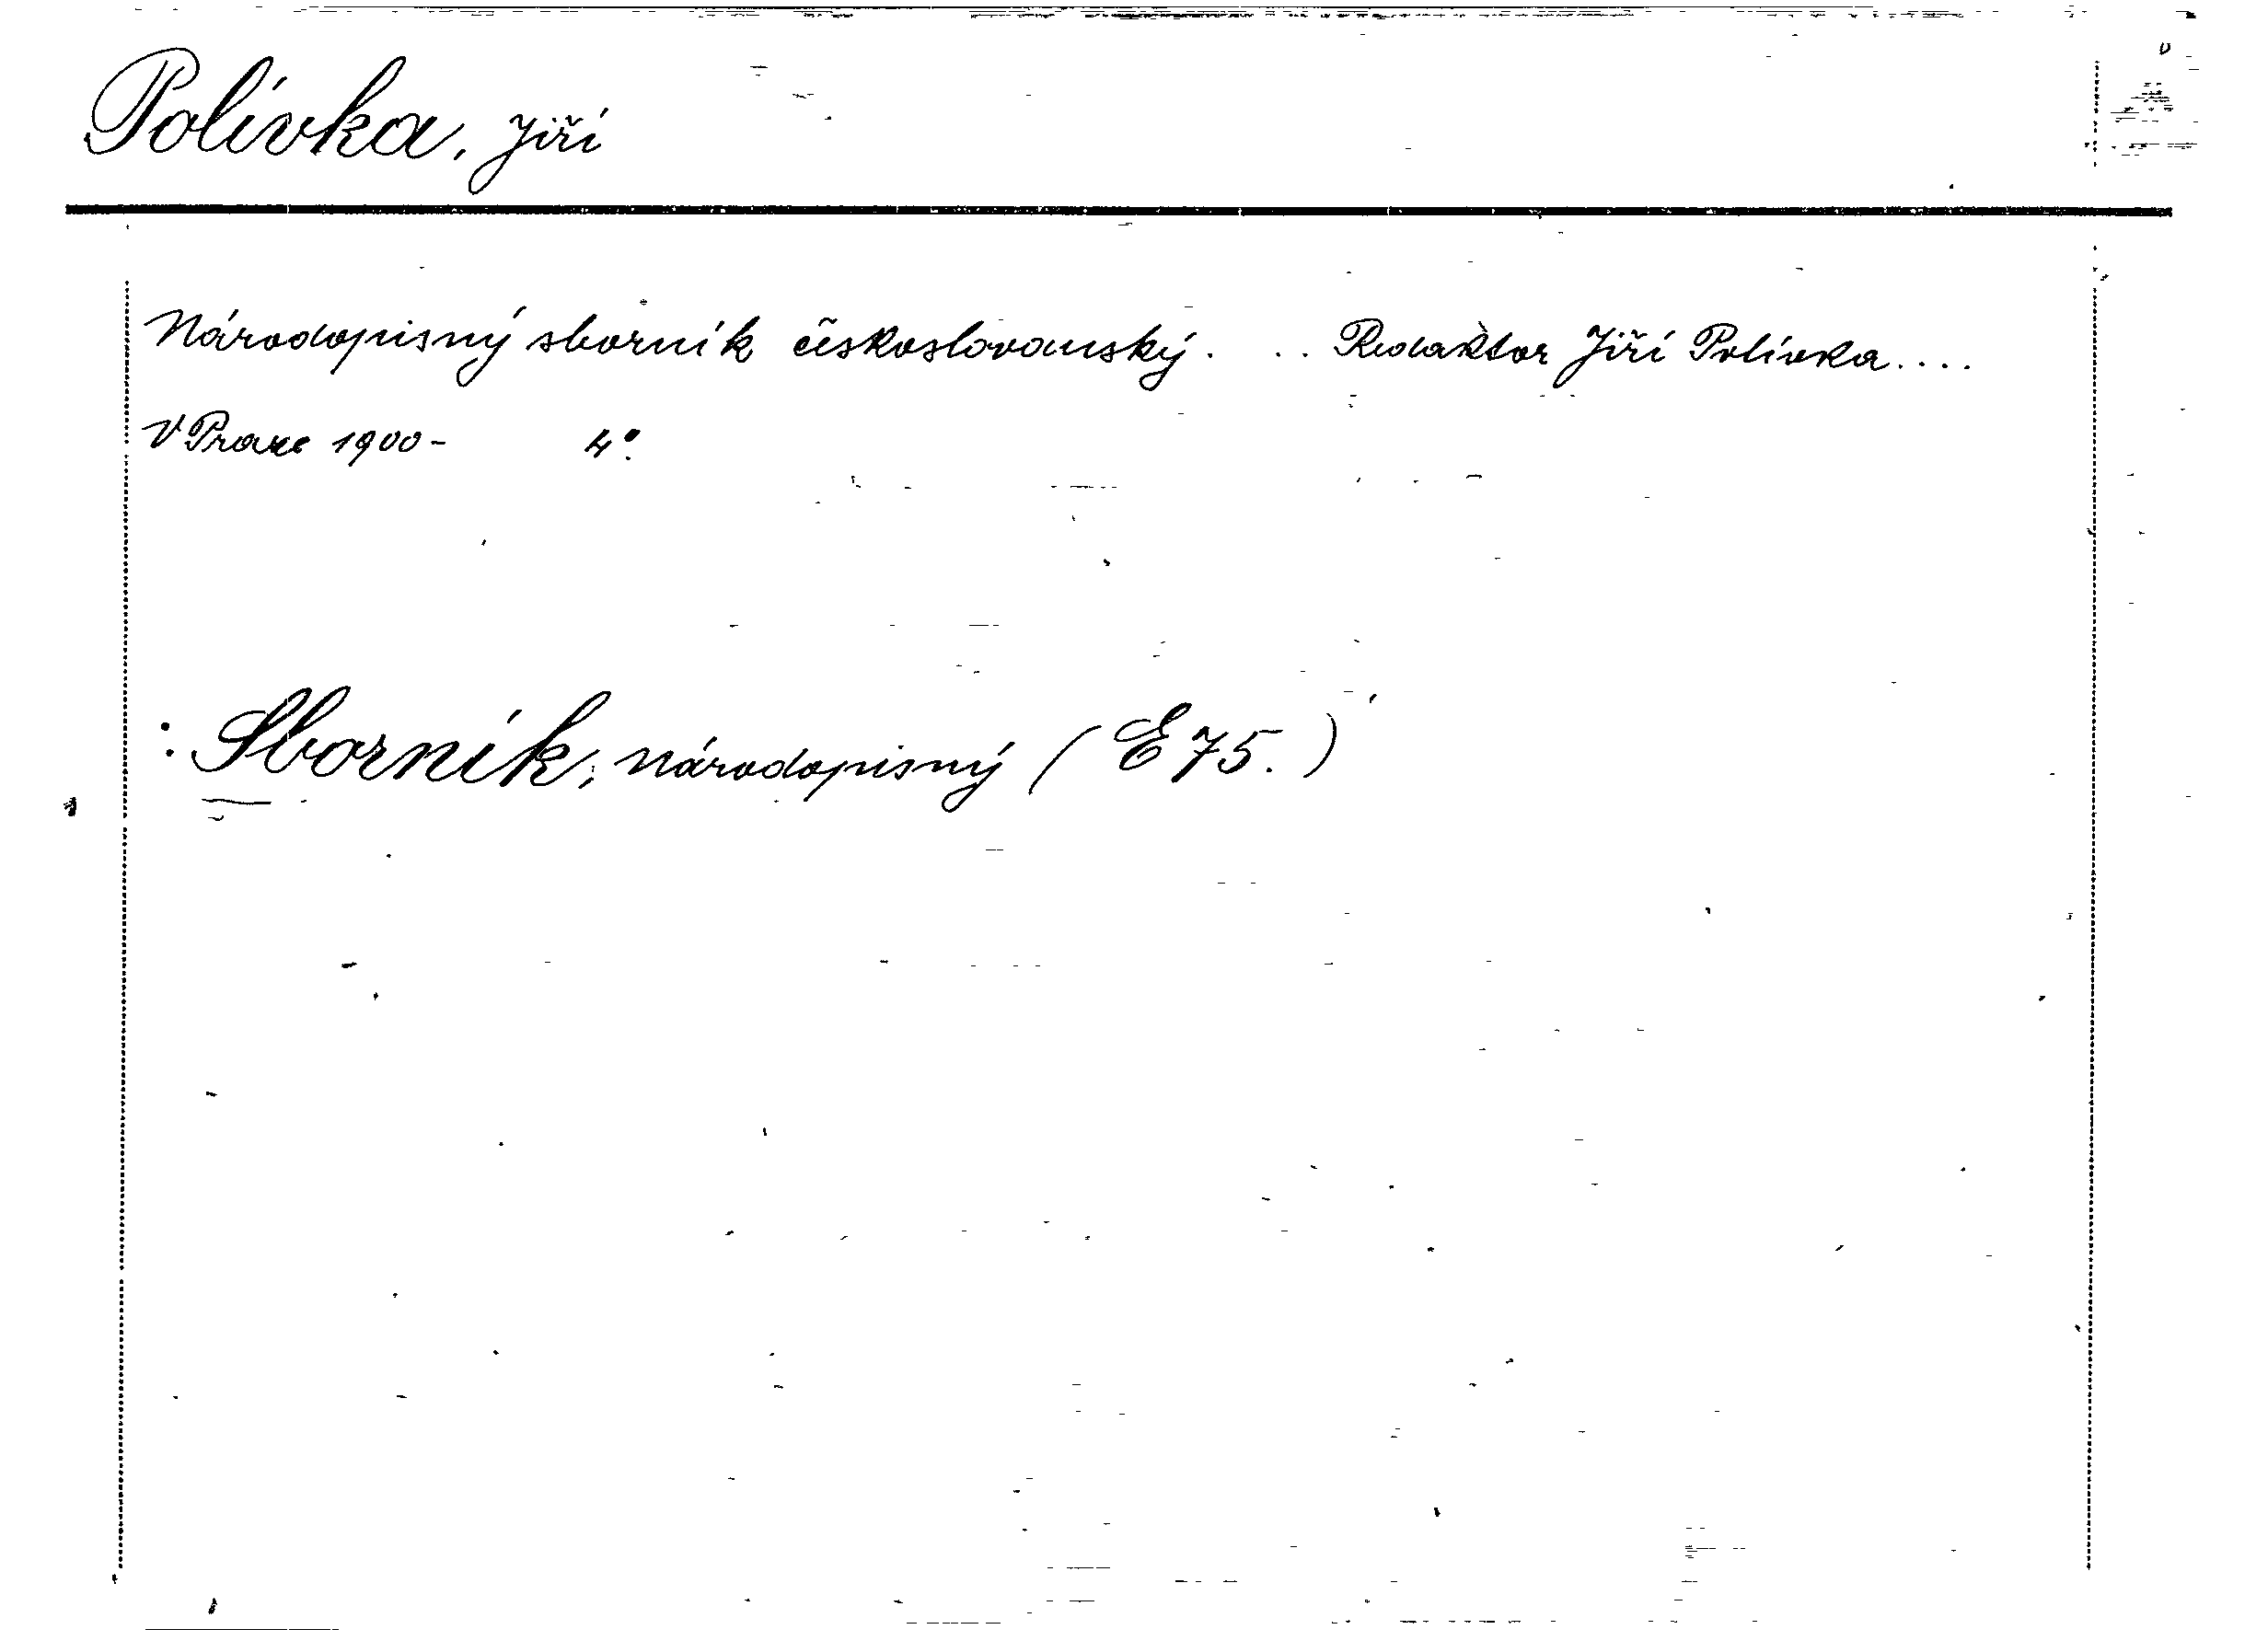 Polívka, Jiří
Národopisný sborník českoslovanský. .. Redaktor Jiří Polívka....
V Praze 1900- 4°.
: Sborník, národopisný (E 75.)